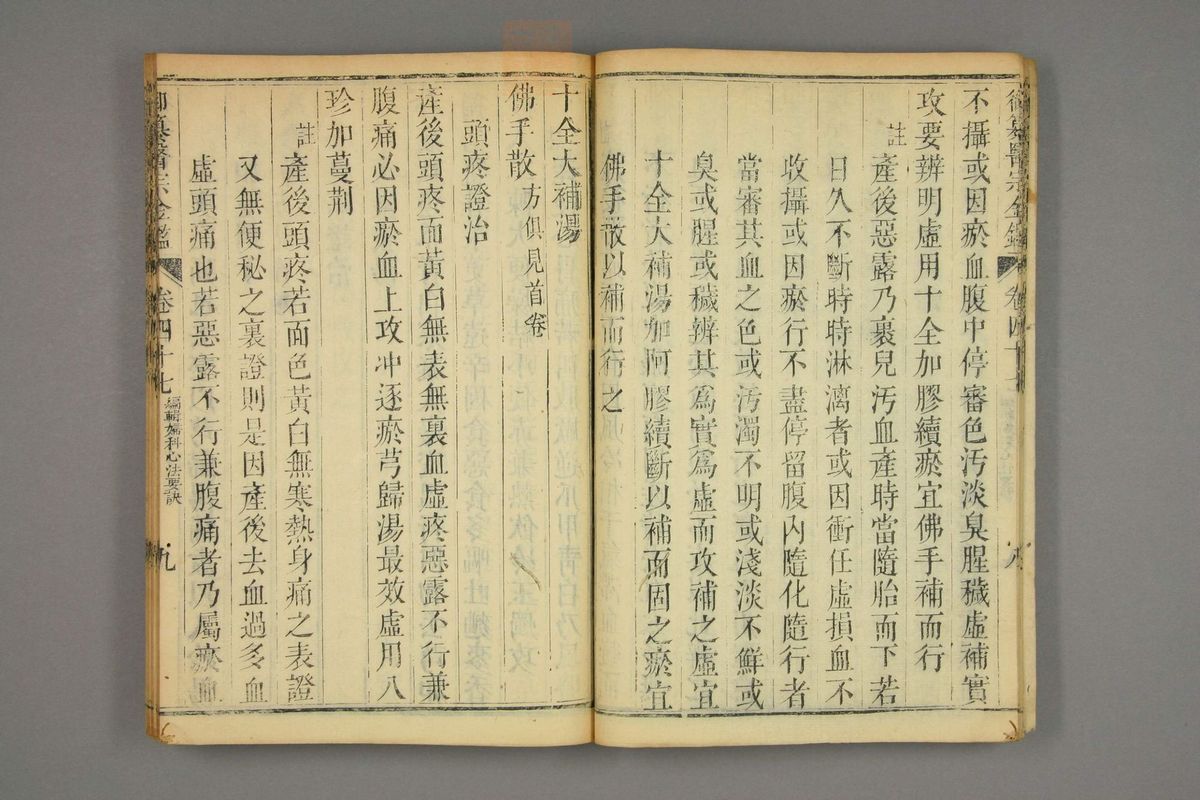 御纂醫宗金鑑 卷四十七 八
不攝或因瘀血腹中停審色汚淡臭腥穢虛補實
攻要辨明虛用十全加膠續瘀宜佛手補而行
註產後惡露乃裹兒汚血產時當隨胎而下若
日久不斷時時淋漓者或因衝任虛損血不
收攝或因瘀行不盡停留腹內隨化隨行者
當審其血之色或汚濁不明或淺淡不鮮或
臭或腥或穢辨其爲實爲虛而攻補之虛宜
十全大補湯加阿膠續斷以補而固之瘀宜
佛手散以補而行之
十全大補湯
佛手散方俱見首卷
頭疼證治
產後頭疼面黃白無表無裏血虛疼惡露不行兼
腹痛必因瘀血上攻冲逐瘀芎歸湯最效虛用八
珍加蔓荆
註產後頭疼若面色黃白無寒熱身痛之表證
又無便秘之裏證則是因產後去血過多血
虛頭痛也若惡露不行兼腹痛者乃屬瘀血
御纂醫宗金鑑 卷四十七 編輯婦科心法要訣 九